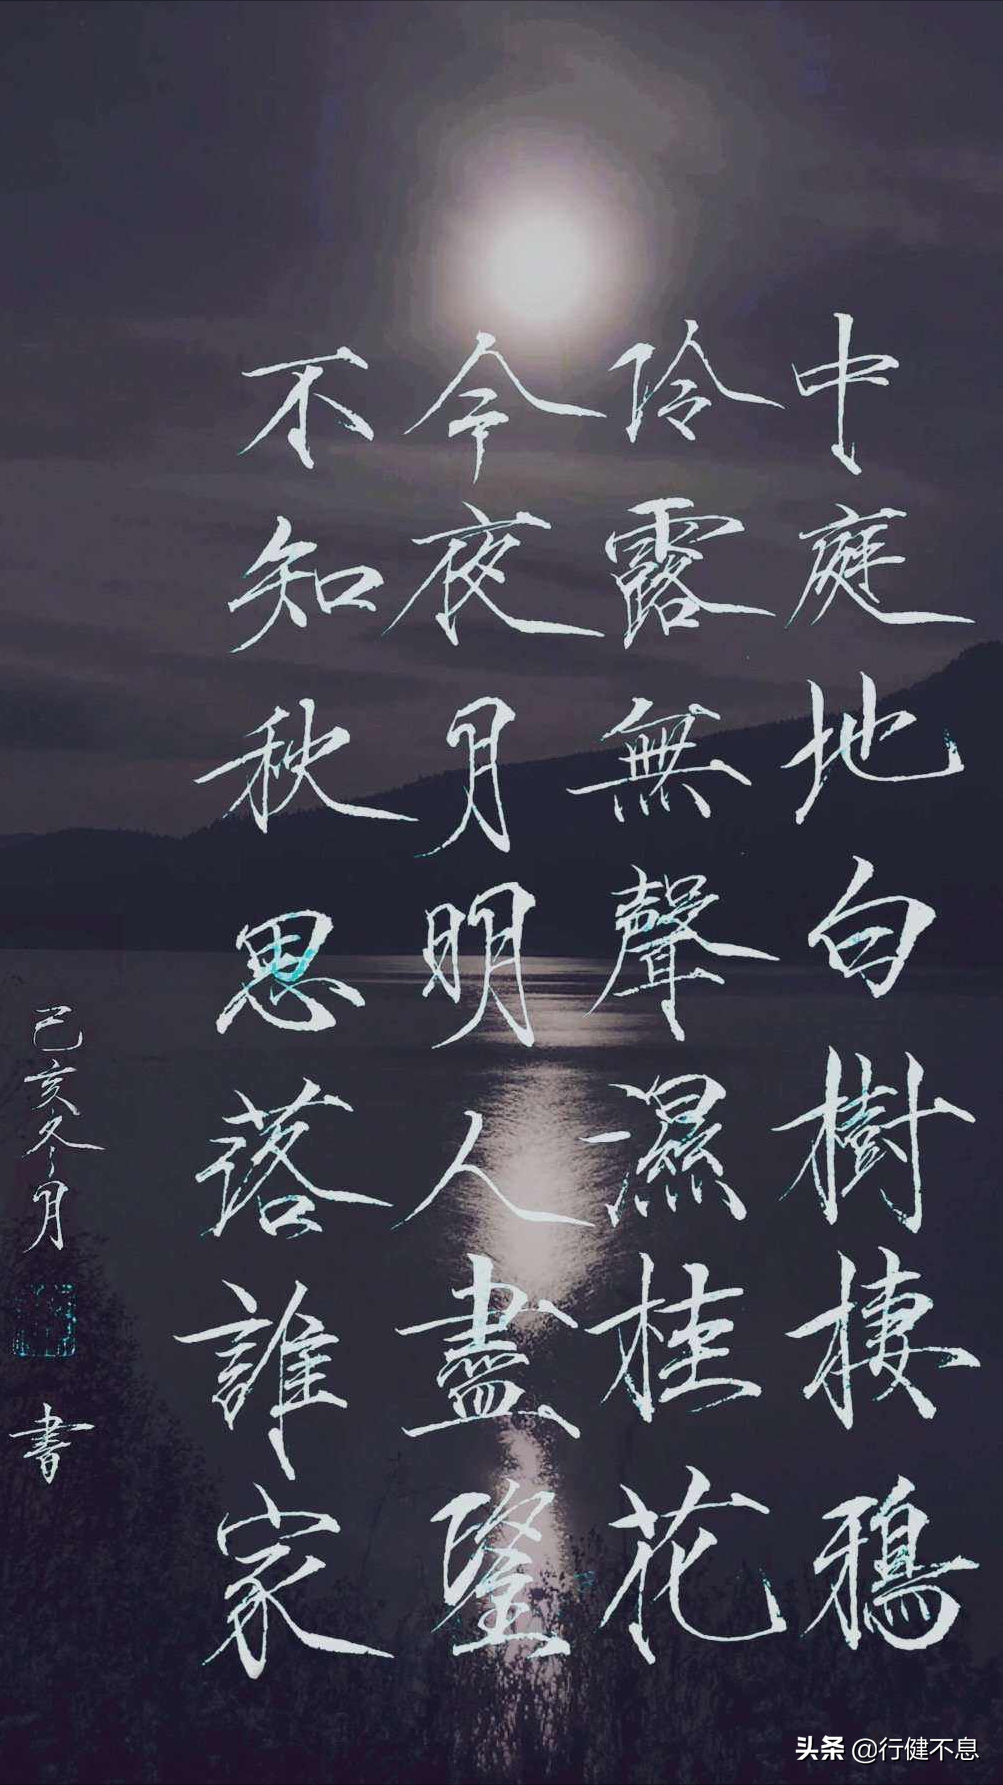 中庭地白樹棲鴉
冷露無聲濕桂花
今夜月明人盡望
不知秋思落誰家
己亥冬月
書
头条 @行健不息